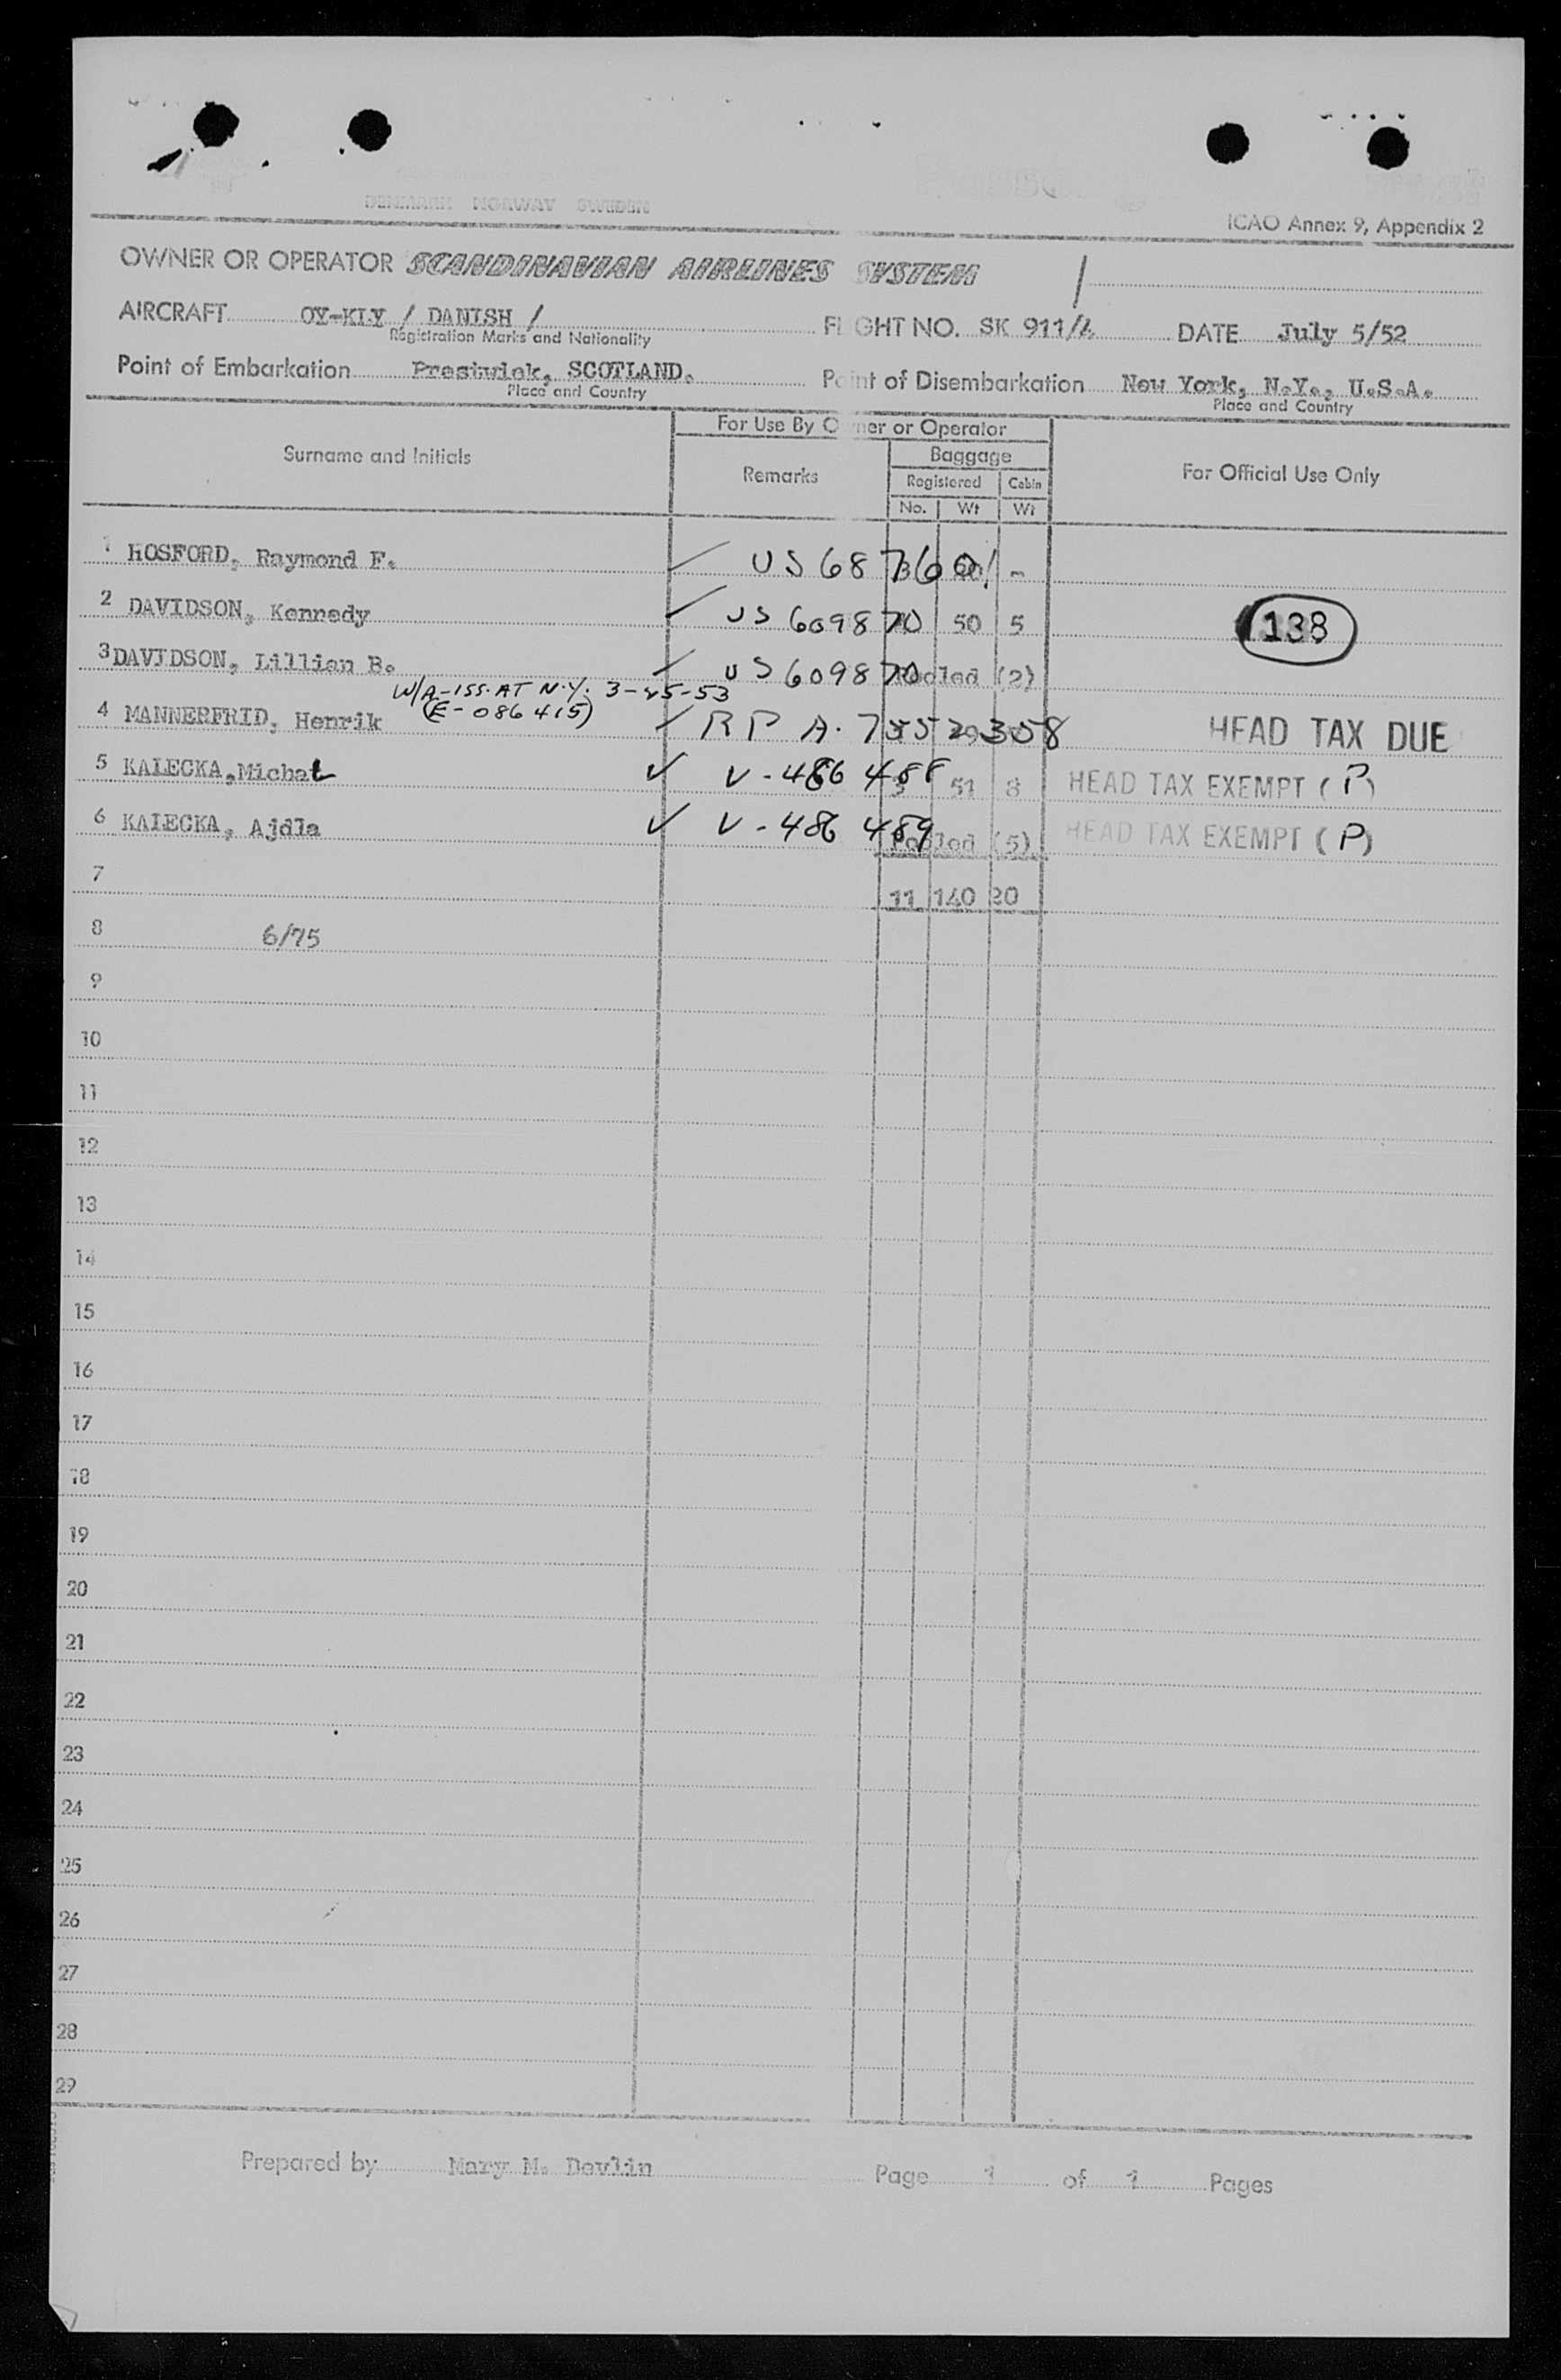 DENMARK NORWAY SWEDEN
ICAO Annex 9, Appendix 2
OWNER OR OPERATOR SCANDINAVIAN AIRLINES SYSTEM /
AIRCRAFT OY-KLY / DANISH / FLIGHT NO. SK 911/4 DATE July 5/52
Registration Marks and Nationality
Point of Embarkation Prestwick, SCOTLAND. Point of Disembarkation New York, N.Y., U.S.A.
Place and Country Place and Country
For Use By Owner or Operator
Surname and Initials Remarks Baggage For Official Use Only
Registered Cabin
No. Wt Wt
1 HOSFORD, Raymond F. US 68760 -
2 DAVIDSON, Kennedy US 609870 50 5 138
3 DAVIDSON, Lillian B. US 609870 Pooled (2)
W/A-ISS. AT N.Y. 3-25-53
(E-086415)
4 MANNERFRID, Henrik RP A. 7552358 HEAD TAX DUE
5 KALECKA, Michał V-486488 51 8 HEAD TAX EXEMPT (P)
6 KALECKA, Ajdla V-486489 Pooled (5) HEAD TAX EXEMPT (P)
7 11 140 20
8 6/75
9
10
11
12
13
14
15
16
17
18
19
20
21
22
23
24
25
26
27
28
29
Prepared by Mary M. Devlin Page 1 of 1 Pages